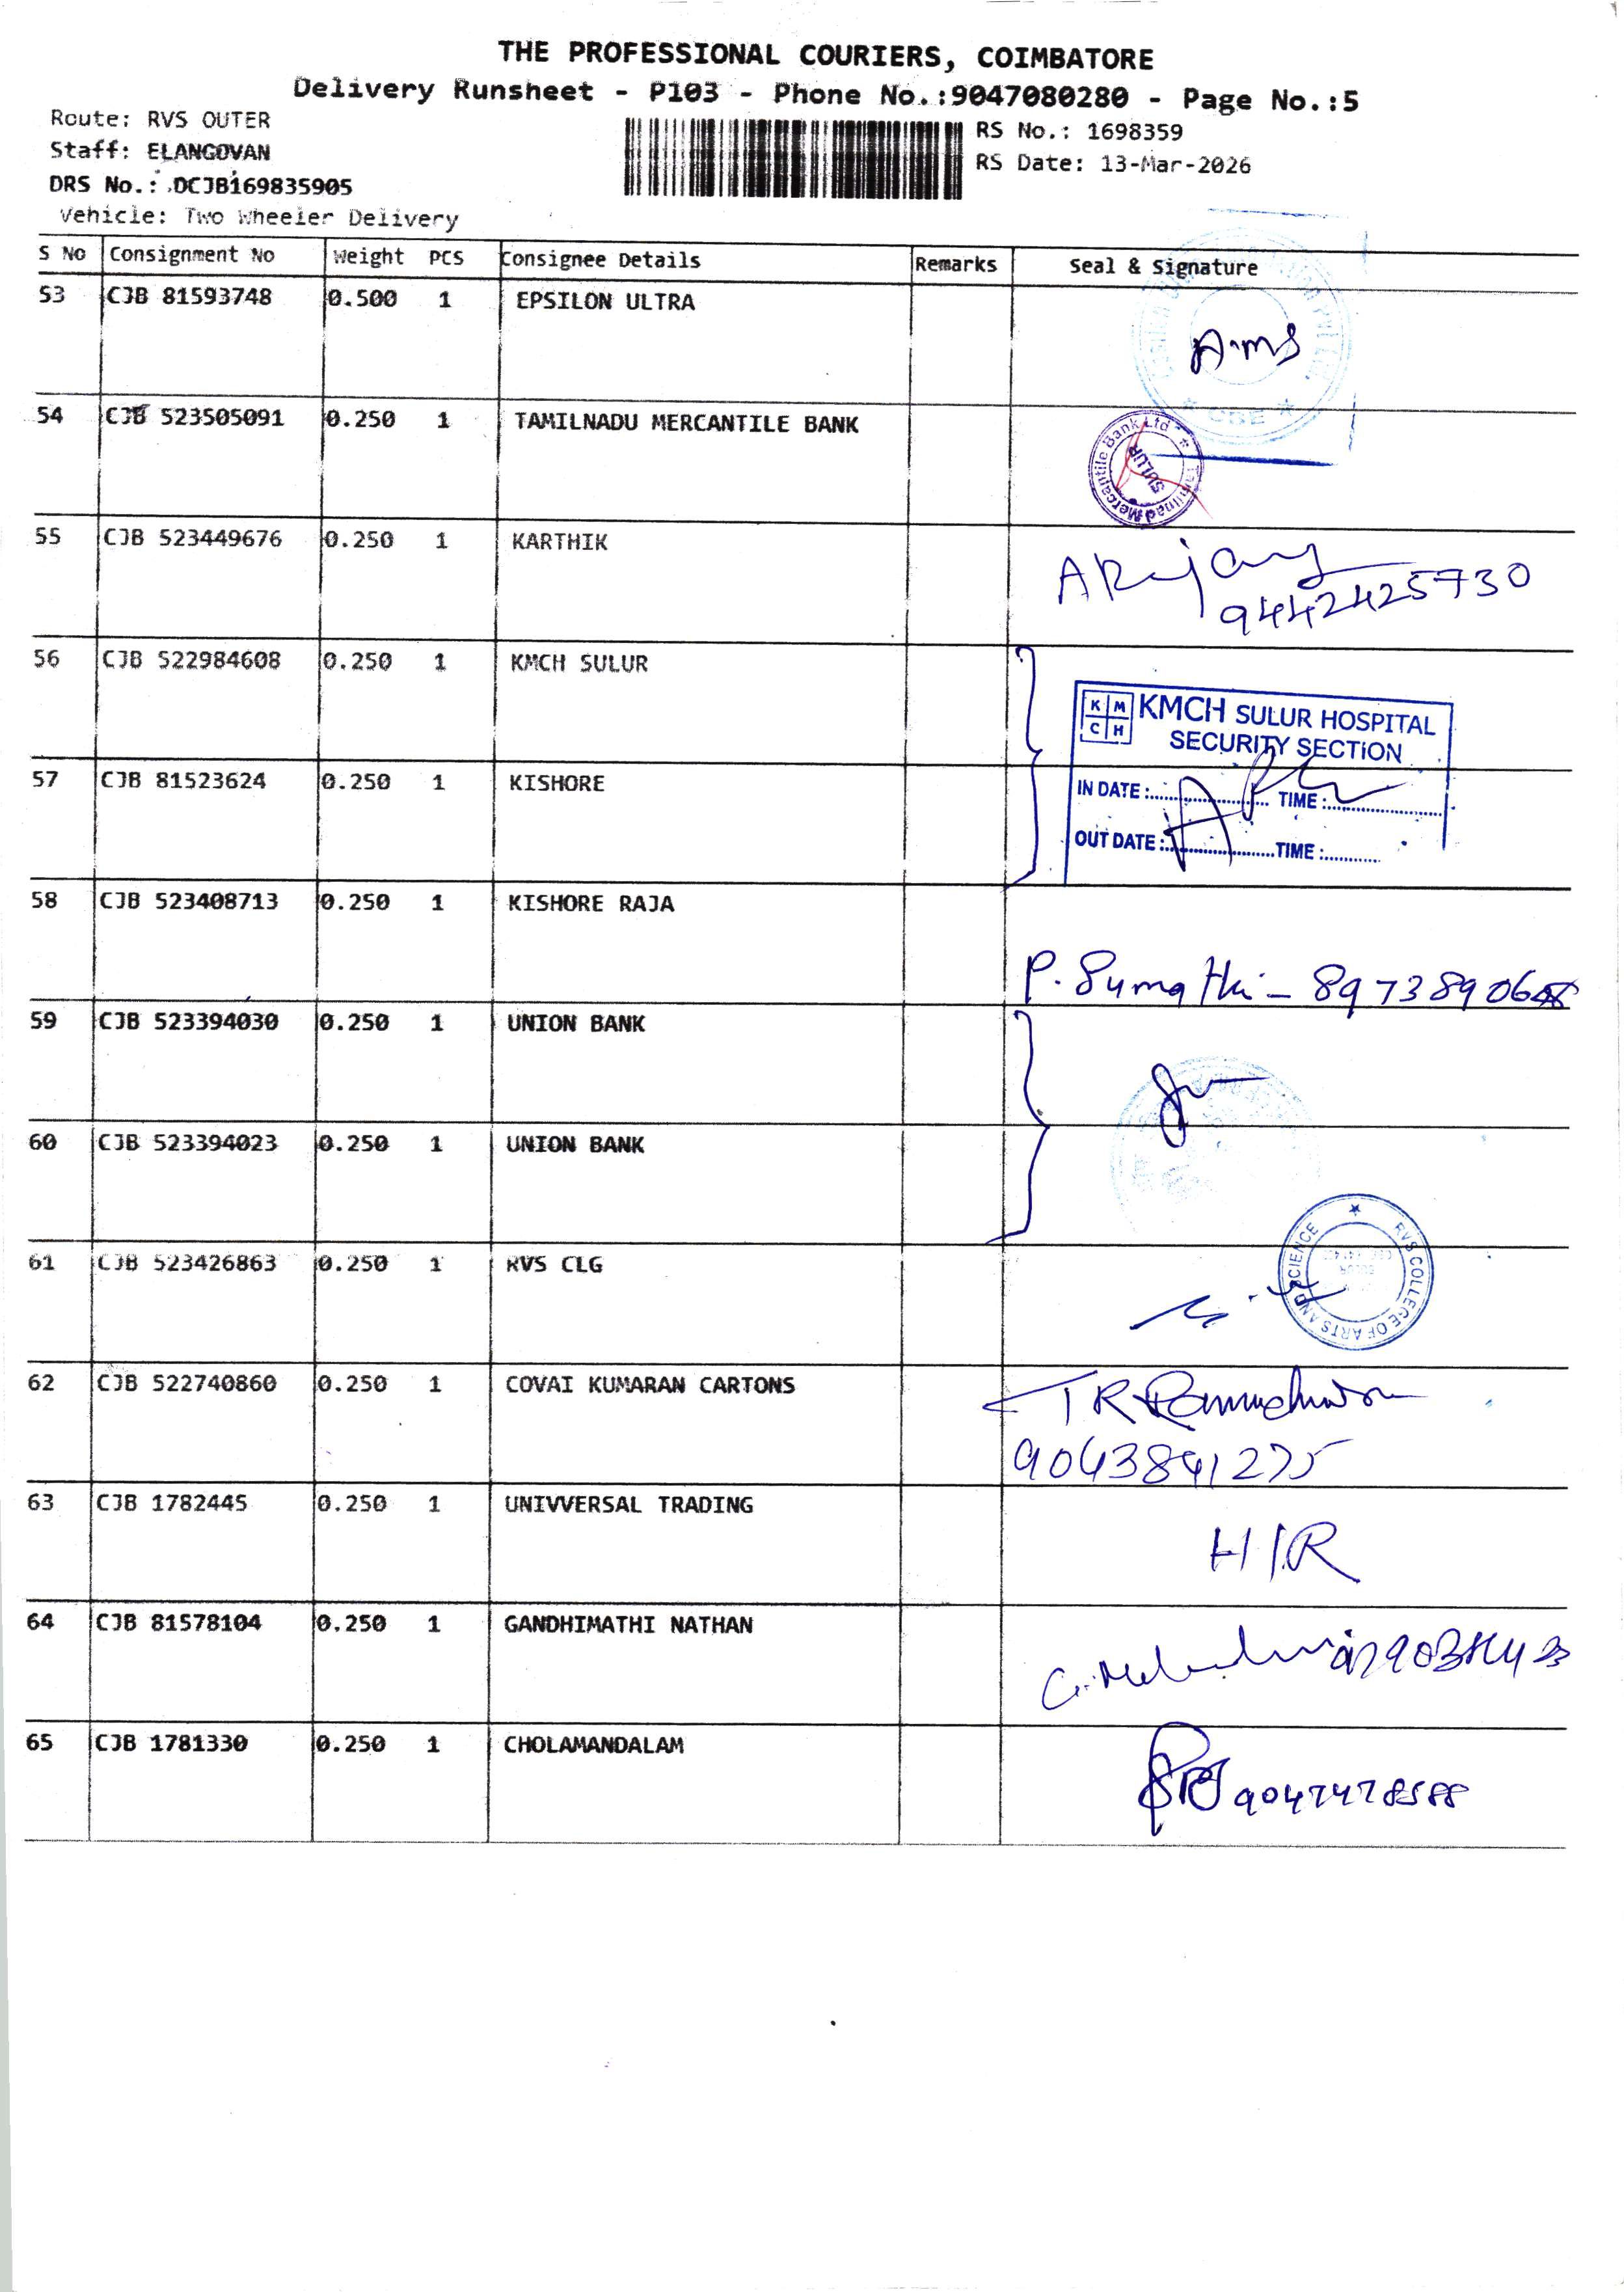 THE PROFESSIONAL COURIERS, COIMBATORE
Delivery Runsheet - P103 - Phone No.:9047080280 - Page No.:5
Route: RVS OUTER
Staff: ELANGOVAN
DRS No.: DCJB169835905
Vehicle: Two Wheeler Delivery
RS No.: 1698359
RS Date: 13-Mar-2026
S No Consignment No Weight PCS Consignee Details Remarks Seal & Signature
53 CJB 81593748 0.500 1 EPSILON ULTRA
A.ms
CBE
54 CJB 523505091 0.250 1 TAMILNADU MERCANTILE BANK
Tamilnad Mercantile Bank Ltd
SULUR
55 CJB 523449676 0.250 1 KARTHIK
9442425730
56 CJB 522984608 0.250 1 KMCH SULUR
KMCH
KMCH SULUR HOSPITAL
SECURITY SECTION
57 CJB 81523624 0.250 1 KISHORE
IN DATE : TIME :
OUT DATE : TIME :
58 CJB 523408713 0.250 1 KISHORE RAJA
P. Sumathi -
59 CJB 523394030 0.250 1 UNION BANK
60 CJB 523394023 0.250 1 UNION BANK
61 CJB 523426863 0.250 1 RVS CLG
RVS COLLEGE OF ARTS AND SCIENCE
SULUR
62 CJB 522740860 0.250 1 COVAI KUMARAN CARTONS
TR
9043841275
63 CJB 1782445 0.250 1 UNIVVERSAL TRADING
H/R
64 CJB 81578104 0.250 1 GANDHIMATHI NATHAN
65 CJB 1781330 0.250 1 CHOLAMANDALAM
9047478588